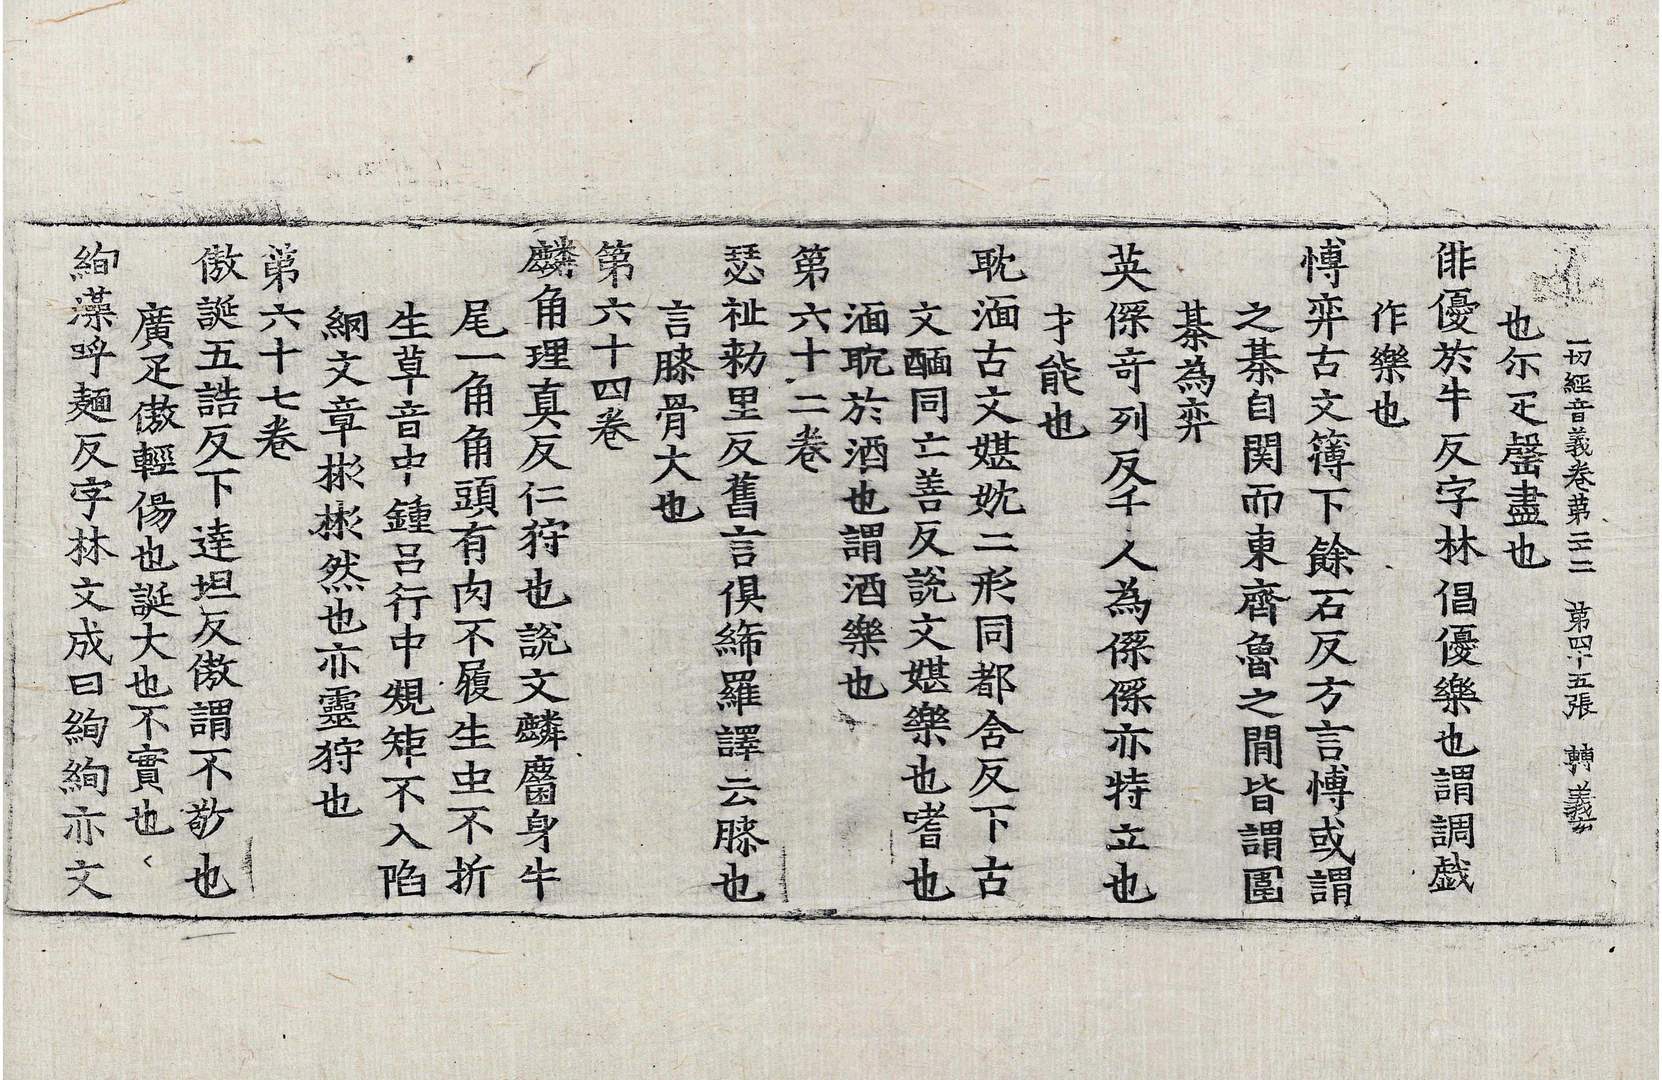 一切經音義卷苐二十二 第四十五張 轉義
也尒疋罄盡也
俳優於牛反字林倡優樂也謂調戯
作樂也
愽弈古文簿下餘石反方言愽或謂
之棊自関而東齊魯之間皆謂圍
棊為弈
英傑竒列反千人為傑傑亦特立也
才能也
耽湎古文媅妉二形同都含反下古
文醽同亡善反說文媅樂也嗜也
湎耽於酒也謂酒樂也
第六十二卷
瑟祉勑里反舊言俱絺羅譯云膝也
言膝骨大也
第六十四卷
麟角理真反仁狩也說文麟麕身牛
尾一角角頭有肉不履生虫不折
生草音中鍾吕行中䂓矩不入陷
綱文章彬彬然也亦靈狩也
苐六十七卷
傲誕五誥反下達坦反傲謂不敬也
廣疋傲輕傷也誕大也不實也
絢藻呼麺反字林文成曰絢絢亦文